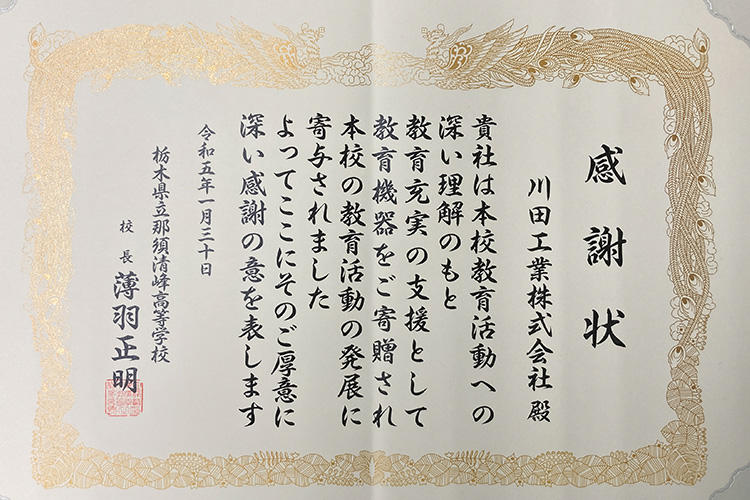 感謝状
川田工業株式会社 殿
貴社は本校教育活動への
深い理解のもと
教育充実の支援として
教育機器をご寄贈され
本校の教育活動の発展に
寄与されました
よってここにそのご厚意に
深い感謝の意を表します
令和五年一月三十日
栃木県立那須清峰高等学校
校長 薄羽正明